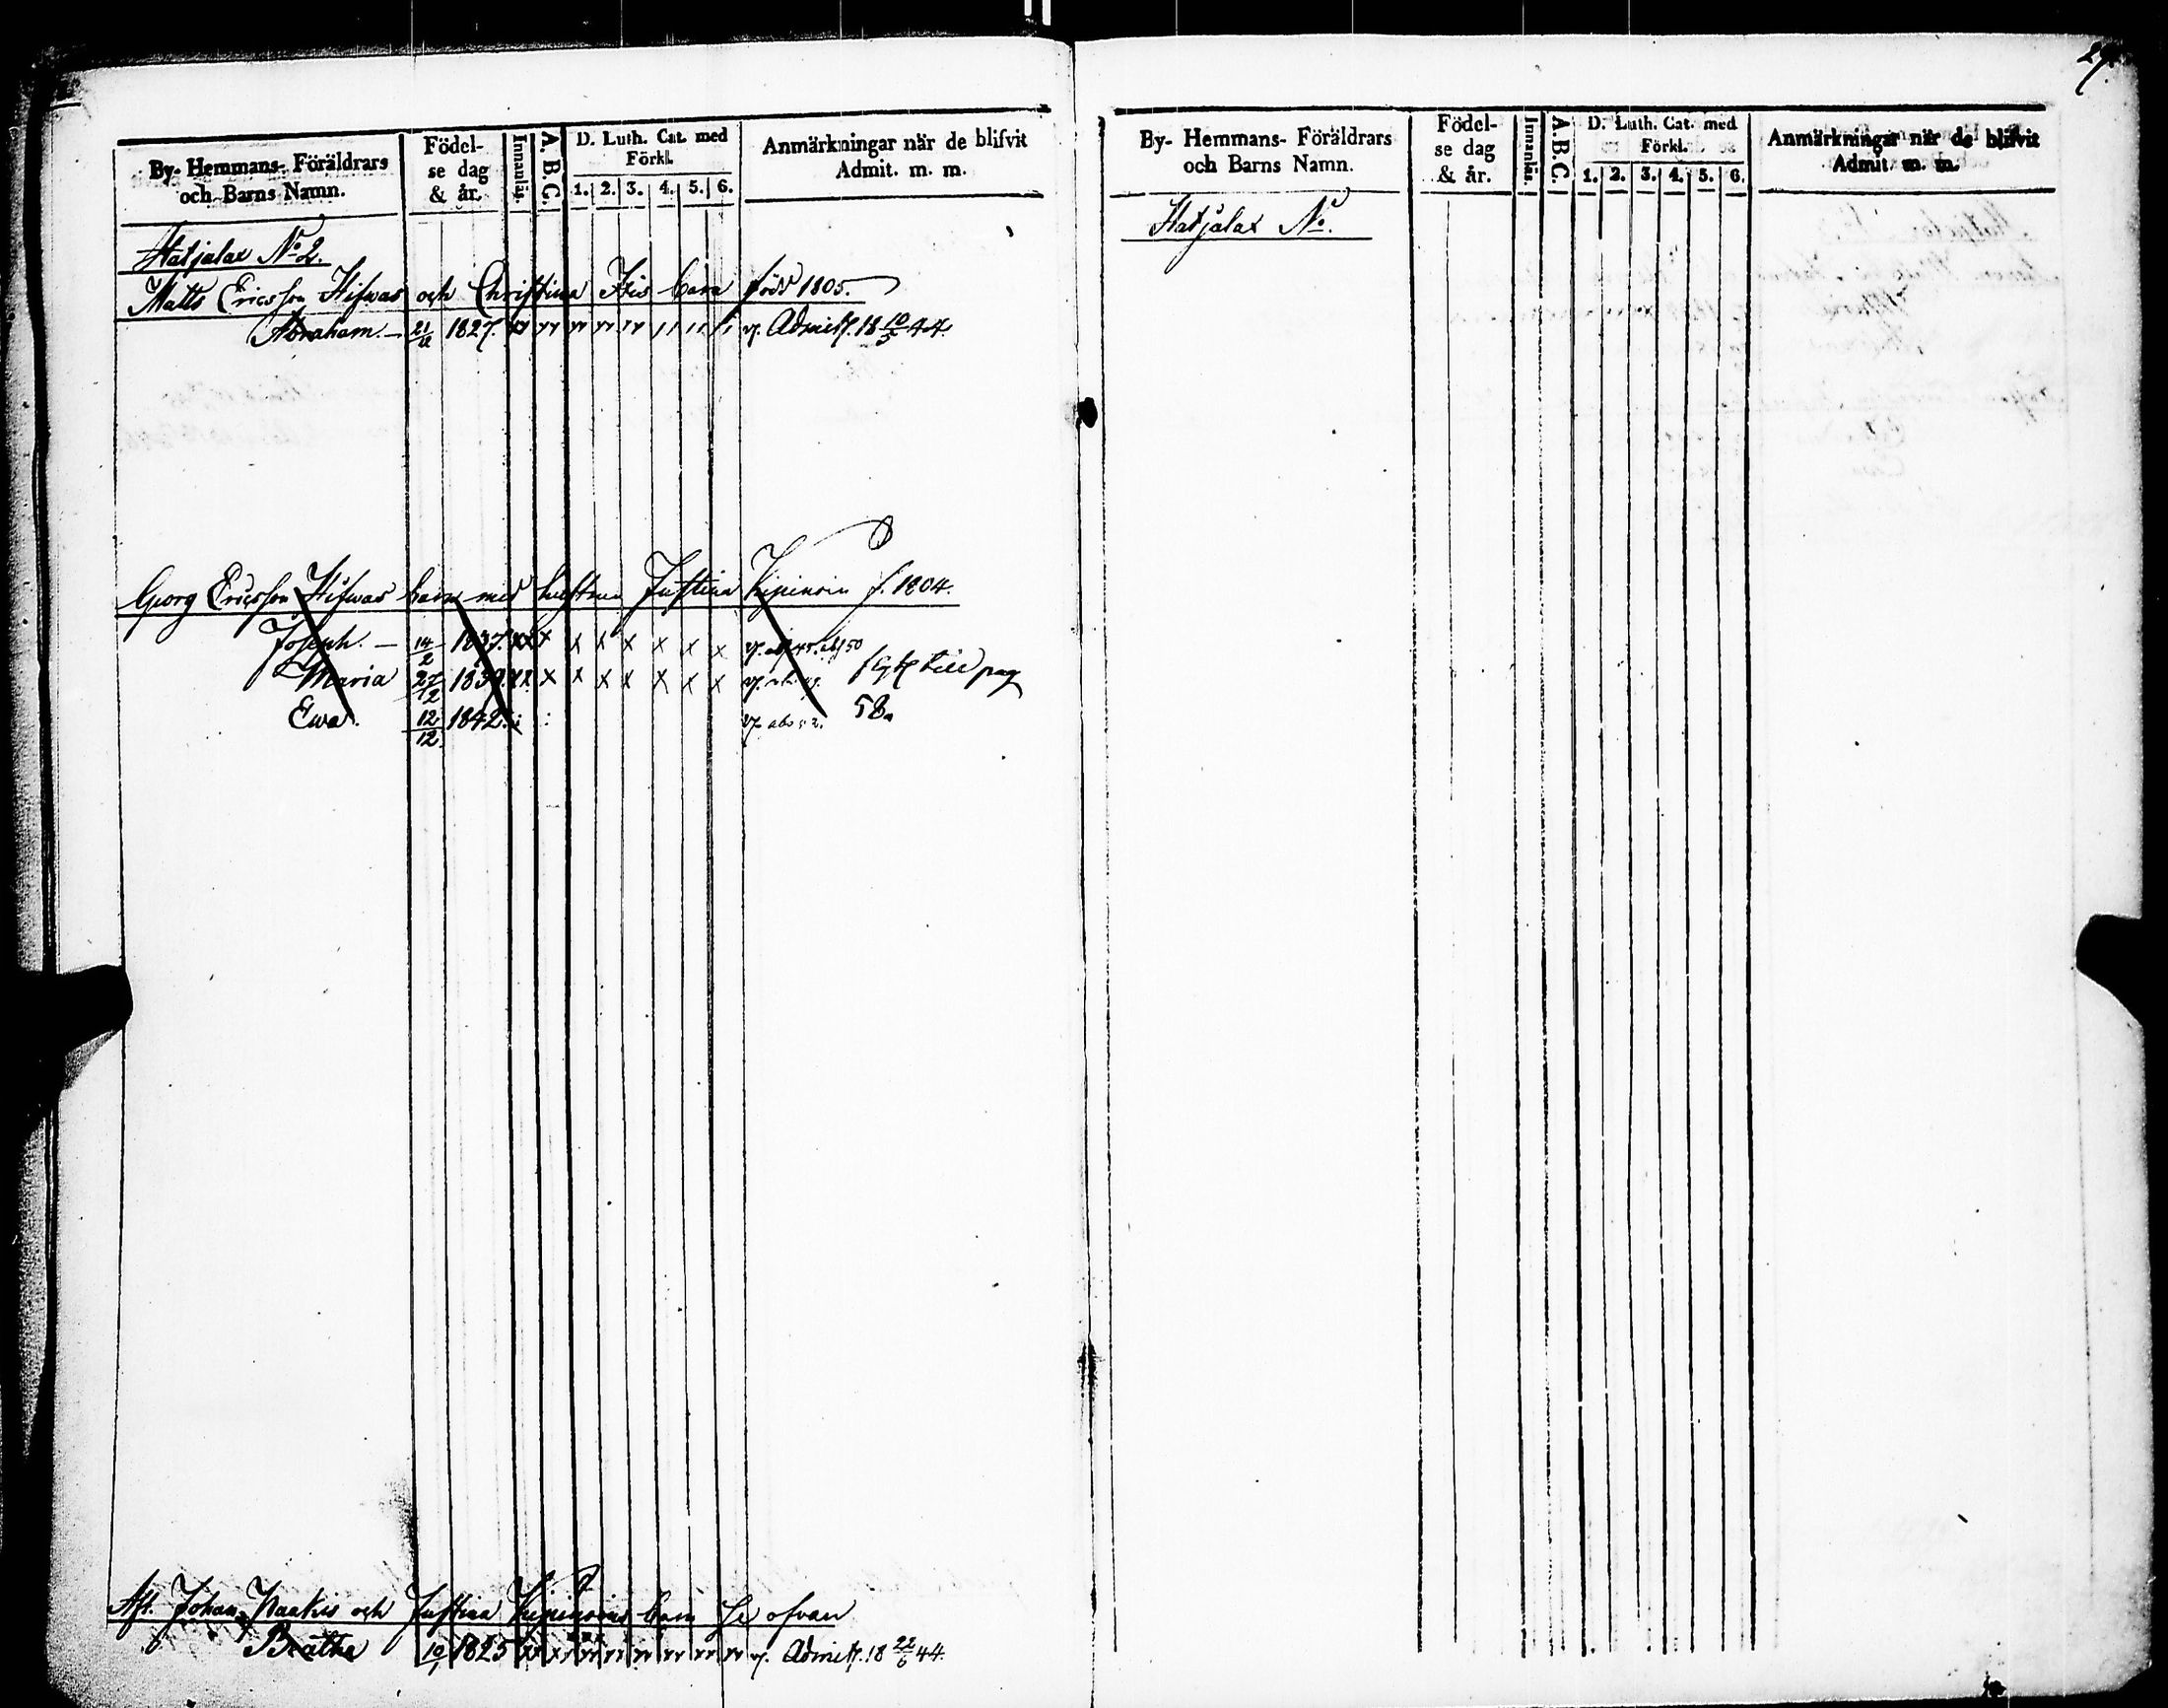 27.
By- Hemmans- Föräldrars
och Barns Namn.
Födel-
se dag
& år.
Innanläs.
A. B. C.
D. Luth. Cat. med
Förkl.
1. 2. 3. 4. 5. 6.
Anmärkningar när de blifvit
Admit. m. m.
Hatjalax No 2.
Matts Ericsson Hifwas och Christina barn född 1805.
Abraham. — 1827. Admitt. 18 10/5 44.
Georg Ericsson Hifwas barn med hustrun Justina f. 1804.
Joseph. — 14/2 1837. xx x x x x x x x
Maria 27/12 1839. xx x x x x x x x till pag
Ewa. 12/12 1842. 58.
Afl. Johan Paakis och Justina barn Se ofvan
Beatha 10/1 1825 Admitt. 18 22/6 44.
By- Hemmans- Föräldrars
och Barns Namn.
Födel-
se dag
& år.
Innanläs.
A. B. C.
D. Luth. Cat. med
Förkl.
1. 2. 3. 4. 5. 6.
Anmärkningar när de blifvit
Admit. m. m.
Hatjalax No.